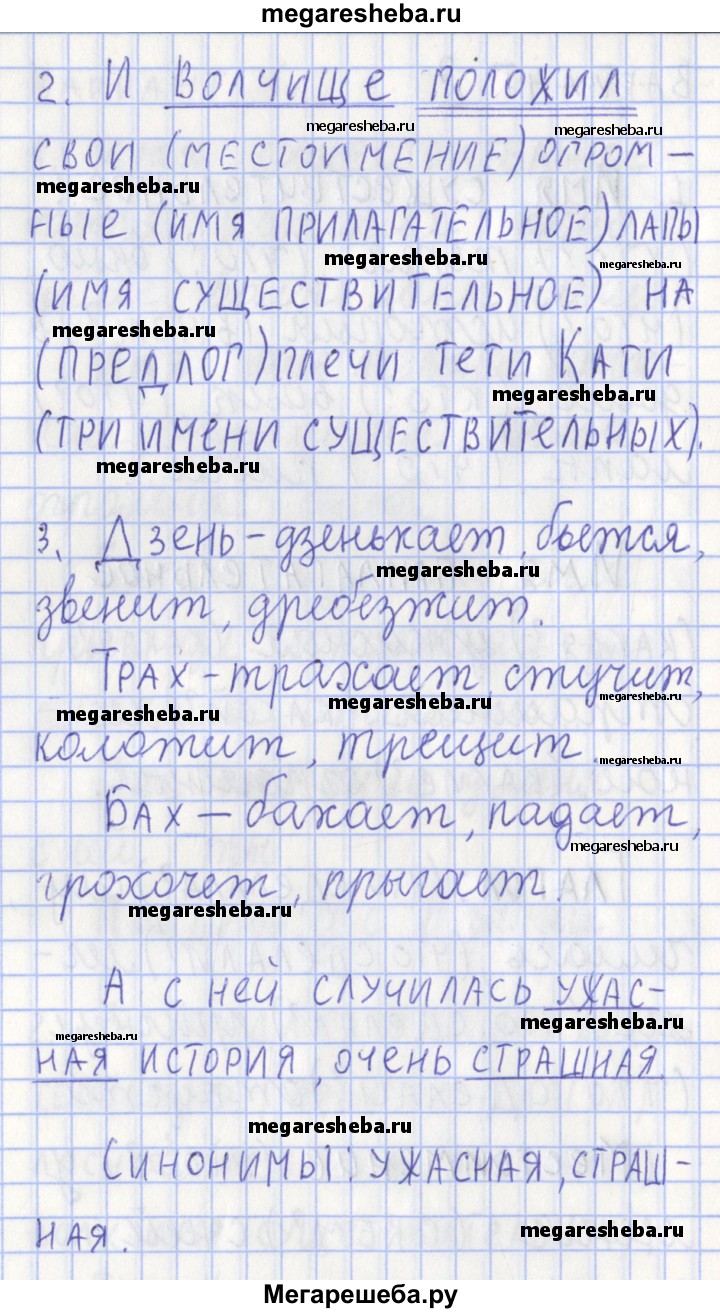 megaresheba.ru
2. И Волчище положил
megaresheba.ru megaresheba.ru
свои (местоимение) огром-
megaresheba.ru
ные (имя прилагательное) лапы
megaresheba.ru megaresheba.ru
(имя существительное) на
megaresheba.ru
(предлог) плечи тети Кати
megaresheba.ru
(три имени существительных).
megaresheba.ru
3. Дзень - дзенькает, бьется,
megaresheba.ru
звенит, дребезжит.
Трах - трахает, стучит,
megaresheba.ru megaresheba.ru megaresheba.ru
колотит, трещит.
megaresheba.ru
Бах - бахает, падает,
megaresheba.ru
грохочет, прыгает.
megaresheba.ru
А с ней случилась ужас-
megaresheba.ru megaresheba.ru
ная история, очень страшная.
megaresheba.ru
Синонимы: ужасная, страш-
ная.
megaresheba.ru
Мегарешеба.ру